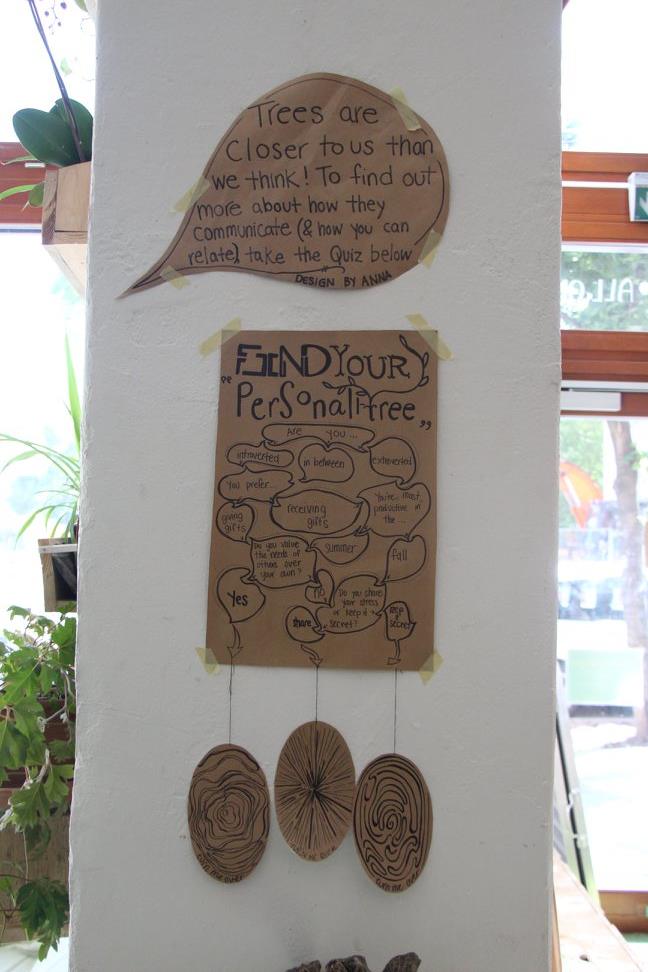 Trees are
Closer to us than
we think! To find out
more about how they
communicate (& how you can
relate) take the Quiz below
DESIGN BY ANNA
FIND YOUR
"PerSonalitree"
Are you ...
introverted
in between
extroverted
You prefer...
giving gifts
receiving gifts
You're most
productive in
the ...
summer
fall
Do you value
the needs of
others over
your own?
Yes
no
Do you share
your stress
or keep it
secret?
share
keep
secret
turn me over
turn me over